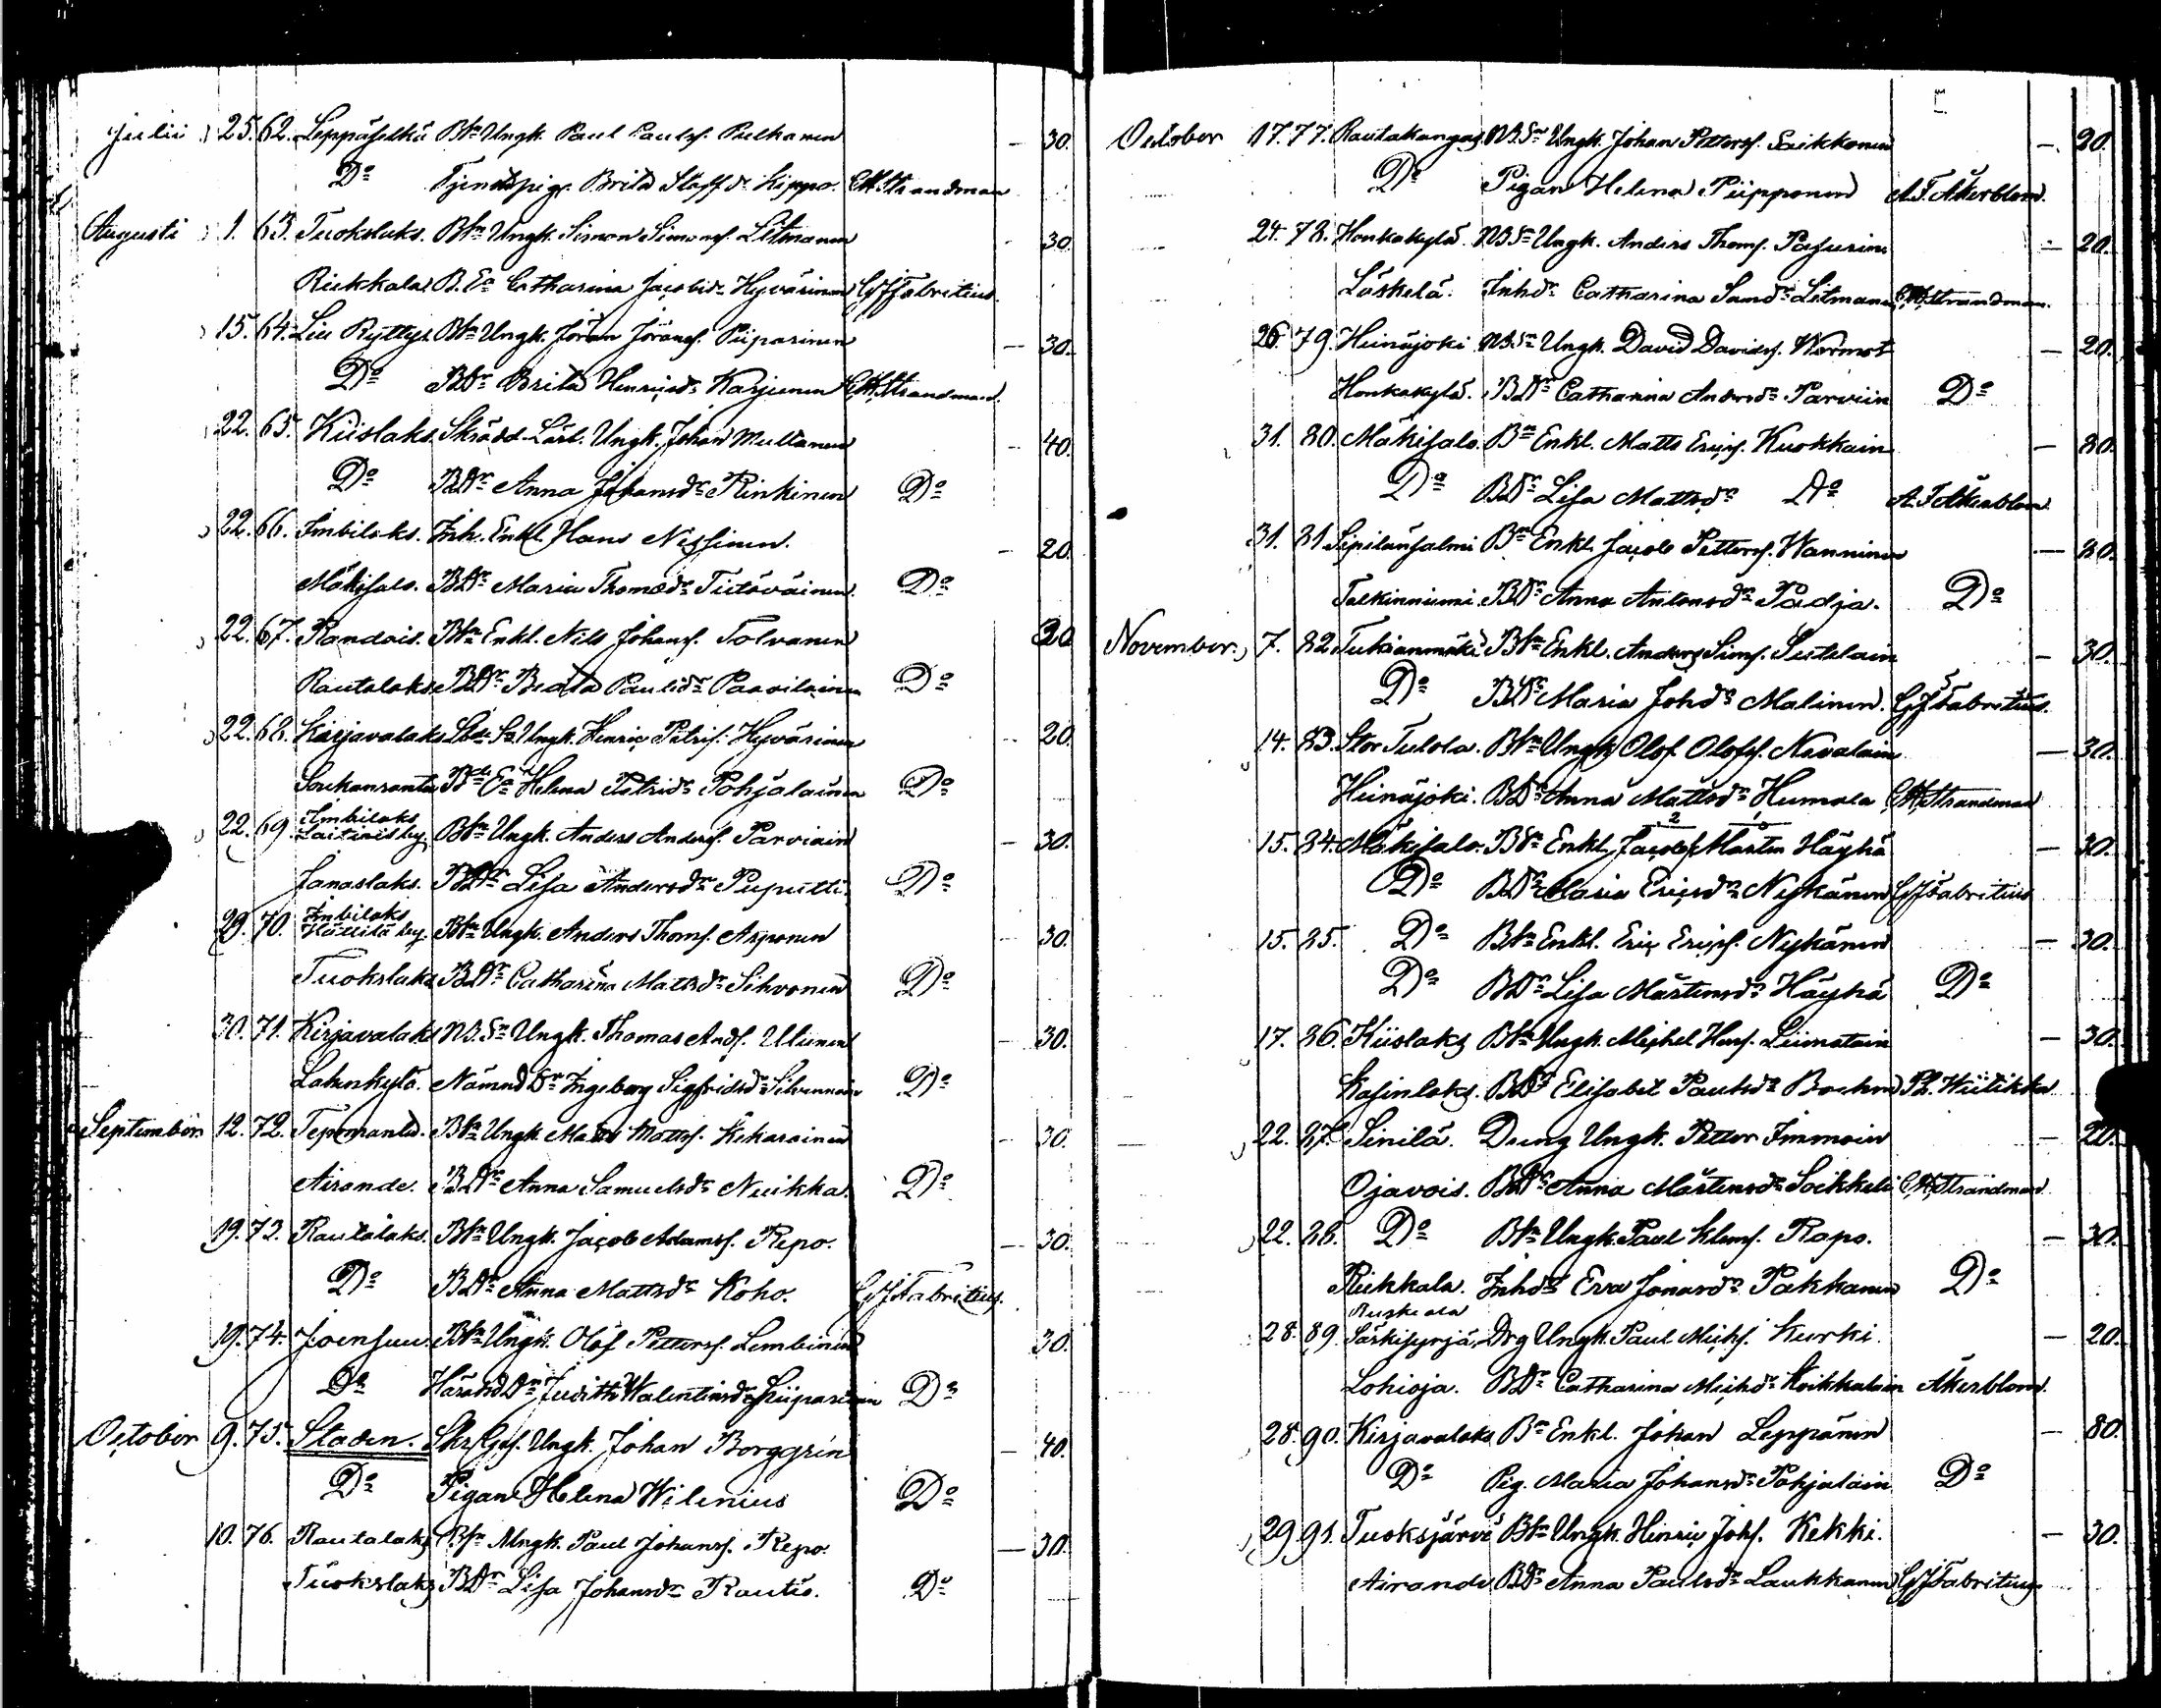 Julii 25. 62. Leppäselkä Bn Ungk. Paul Paulss. Pulkanen — 30.
Do Tjenstepig. Brita Staff.dr Kippo. C.H. Strandman
Augusti 1. 63. Tuokslaks. Bn Ungk. Simon Simonss. Litmanen - 30.
Riekkala B. Ea Catharina Jacobsdr Hyvärinen G.J. Fabritius.
15. 64. Lill Ryttys. Bn Ungk. Jöran Jöranss. Piiparinen — 30.
Do BDr Brita Henricsdr Karjunen C.H. Strandman.
22. 65. Kiislaks. Skrädd. Lärl. Ungk. Johan Mullanen — 40.
Do BDr Anna Johansdr Rinkinen Do
22. 66. Imbilaks. Inh. Enkl. Hans Nissinen. — 20.
Mäkisalo. BDr Maria Thomasdr Tiitäväinen. Do
22. 67. Randois. Bn Enkl. Nils Johanss. Tolvanen 20
Rautalaks BDr Beata Paulsdr Paavilainen Do
22. 68. Kirjavalaks Ungk. Henric Petriss. Hyvärinen — 20.
Sorkanranta Ea Helena Petridr Pohjalainen Do
22. 69. Imbilaks Laitiois by. Bn Ungk. Anders Anderss. Parviain — 30.
Janaslaks. BDr Lisa Andersdr Puputti. Do
29. 70. Imbilaks Hättilä by. Bn Ungk. Anders Thoms. Asponen — 30.
Tuokslaks BDr Catharina Mattsdr Sihvonen Do
30. 71. Kirjavalaks NB. Sn Ungk. Thomas Ands. Ulinen — 30.
Lahenkylä. Nämnd Dr Ingeborg Sigfridsdr Silvennoin Do
September 12. 72. Bn Ungk. Matts Mattss. Kekaroinen — 30.
Airande. BDr Anna Samuelsdr Nuikka. Do
19. 73. Rautalaks. Bn Ungk. Jacob Adamss. Repo. — 30.
Do BDr Anna Mattsdr Koho. G.J. Fabritius.
19. 74. Joensuu. Bn Ungk. Olof Petterss. Lembinen 30.
Do Härads Dr Judith Walentinsdr Piiparinen Do
October 9. 75. Staden. Skr. Ges. Ungk. Johan Borggrén — 40.
Do Pigan Helena Wilenius Do
10. 76. Rautalaks Bn Ungk. Paul Johanss. Repo. — 30.
Tuokslaks BDr Lisa Johansdr Rautio. Do
October 17. 77. Rautakangas. NB. Sn Ungk. Johan Petterss. Saikkonen — 20.
Do Pigan Helena Piipponen A.F. Åkerblom.
24. 78. Honkakylä. NB Sn Ungk. Anders Thoms. Pasurin — 20.
Läskelä. Inhdr Catharina Samdr Litmanen C.H. Strandman.
26. 79. Heinäjoki NB. Sn Ungk. David Davidss. Wornost — 20.
Honkakylä. BDr Catharina Andersdr Parviin Do
31. 80. Mäkisalo. Bn Enkl. Matts Ericss. Kuokkain — 80.
Do BDr Lisa Mattsdr Do A.F. Åkerblom
31. 81. Sipilänsalmi Bn Enkl. Jacob Petterss. Wanninen — 80.
Talkinniemi BDr Anna Antonsdr Padja. Do
November. 7. 82. Tukianmäki Bn Enkl. Anders Sims. Sutelain — 30.
Do BDr Maria Johdr Malinen. G.J. Fabritius.
14. 83. Stor Tulola. Bn Ungk. Olof Olofss. Navalain — 30.
Heinäjoki. BDr Anna Mattsdr Humala C.H. Strandman
15. 84. Mäkisalo. Bn Enkl. Jacob Mårten Häyhä — 30.
Do BDr Maria Ericsdr Nykänen G.J. Fabritius
15. 85. Do Bn Enkl. Eric Ericss. Nykänen — 30.
Do BDr Lisa Mårtensdr Häyhä Do
17. 86. Kiislaks Bn Ungk. Michel Hans. Liimatain — 30.
Kasinlaks. BDr Elisabet Paulsdr Boehm P. Wiitikka
22. 87. Sinilä. Dreng Ungk. Petter Immoin — 20.
Ojavois. BDr Anna Mårtensdr Soikkeli C.H. Strandman
22. 88. Do Bn Ungk. Paul Klems. Rapo. — 30.
Riekkala. Inhdr Eva Jonasdr Pakkanen Do
Ruskeala
28. 89. Särkisyrjä, Drg Ungk. Paul Michs. Kurki. — 20.
Lohioja. BDr Catharina Michdr Koikkalain Åkerblom.
28. 90. Kirjavalaks Bn Enkl. Johan Leppänen — 80.
Do Pig. Maria Johansdr Pohjalain Do
29. 91. Tuoksjärvi Bn Ungk. Henric Johs. Kekki. — 30.
Airande BDr Anna Paulsdr Laukkanen G.J. Fabritius